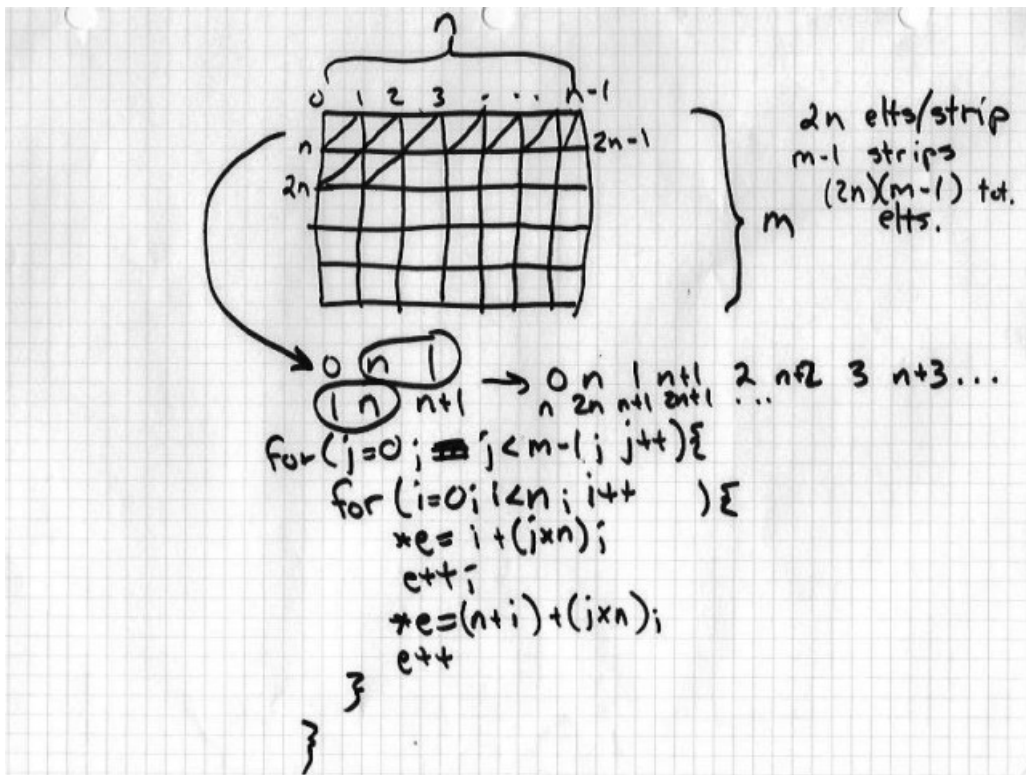 n
0 1 2 3 . . . n-1
n 2n-1
2n
m
2n elts/strip
m-1 strips
(2n)(m-1) tot.
elts.
0 n 1 → 0 n 1 n+1 2 n+2 3 n+3...
1 n n+1 n 2n n+1 2n+1 ...
for(j=0; j<m-1; j++){
for(i=0; i<n; i++ ){
*e= i+(j×n);
e++;
*e=(n+i)+(j×n);
e++
}
}